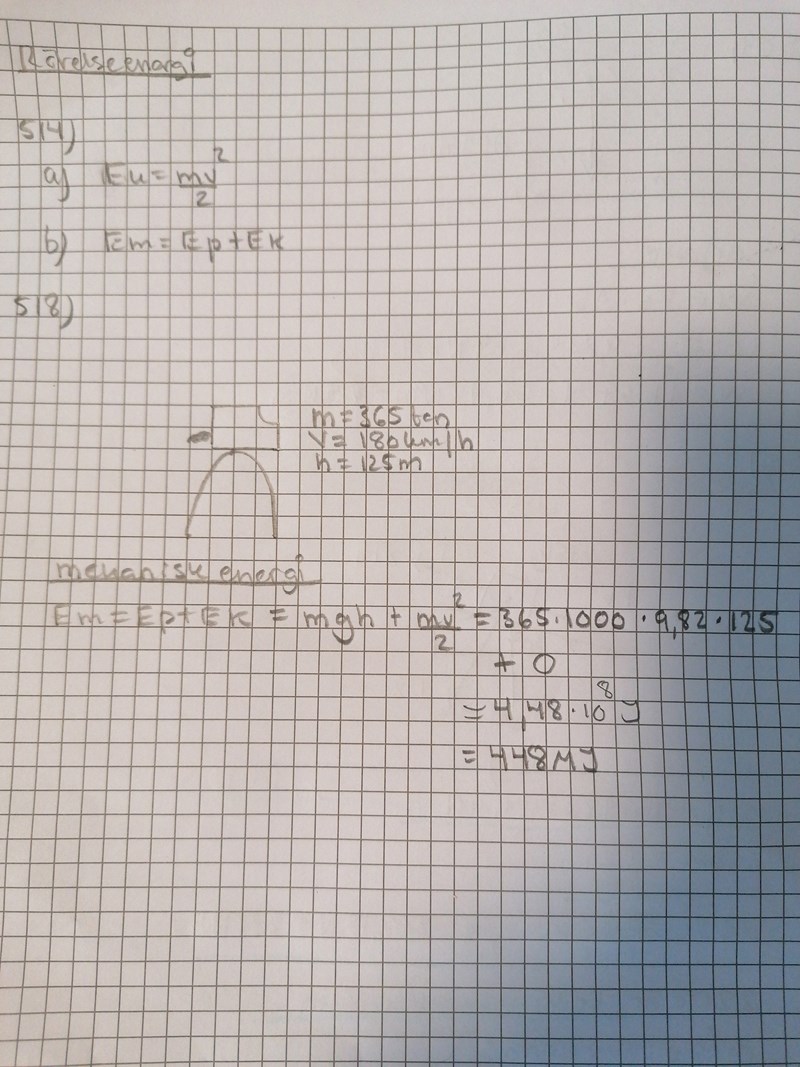 Rörelseenergi
514)
a) Ek = mv²/2
b) Em = Ep + Ek
518)
m = 365 ton
v = 180 km/h
h = 125 m
mekanisk energi
Em = Ep + Ek = mgh + mv²/2 = 365·1000·9,82·125
+ 0
= 4,48·10⁸ J
= 448 MJ